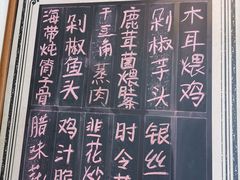 木耳煨鸡
剁椒芋头
鹿茸菌煨
干豆角蒸肉
剁椒鱼头
海带炖筒子骨
银丝
时令
韭花炒
鸡汁
腊